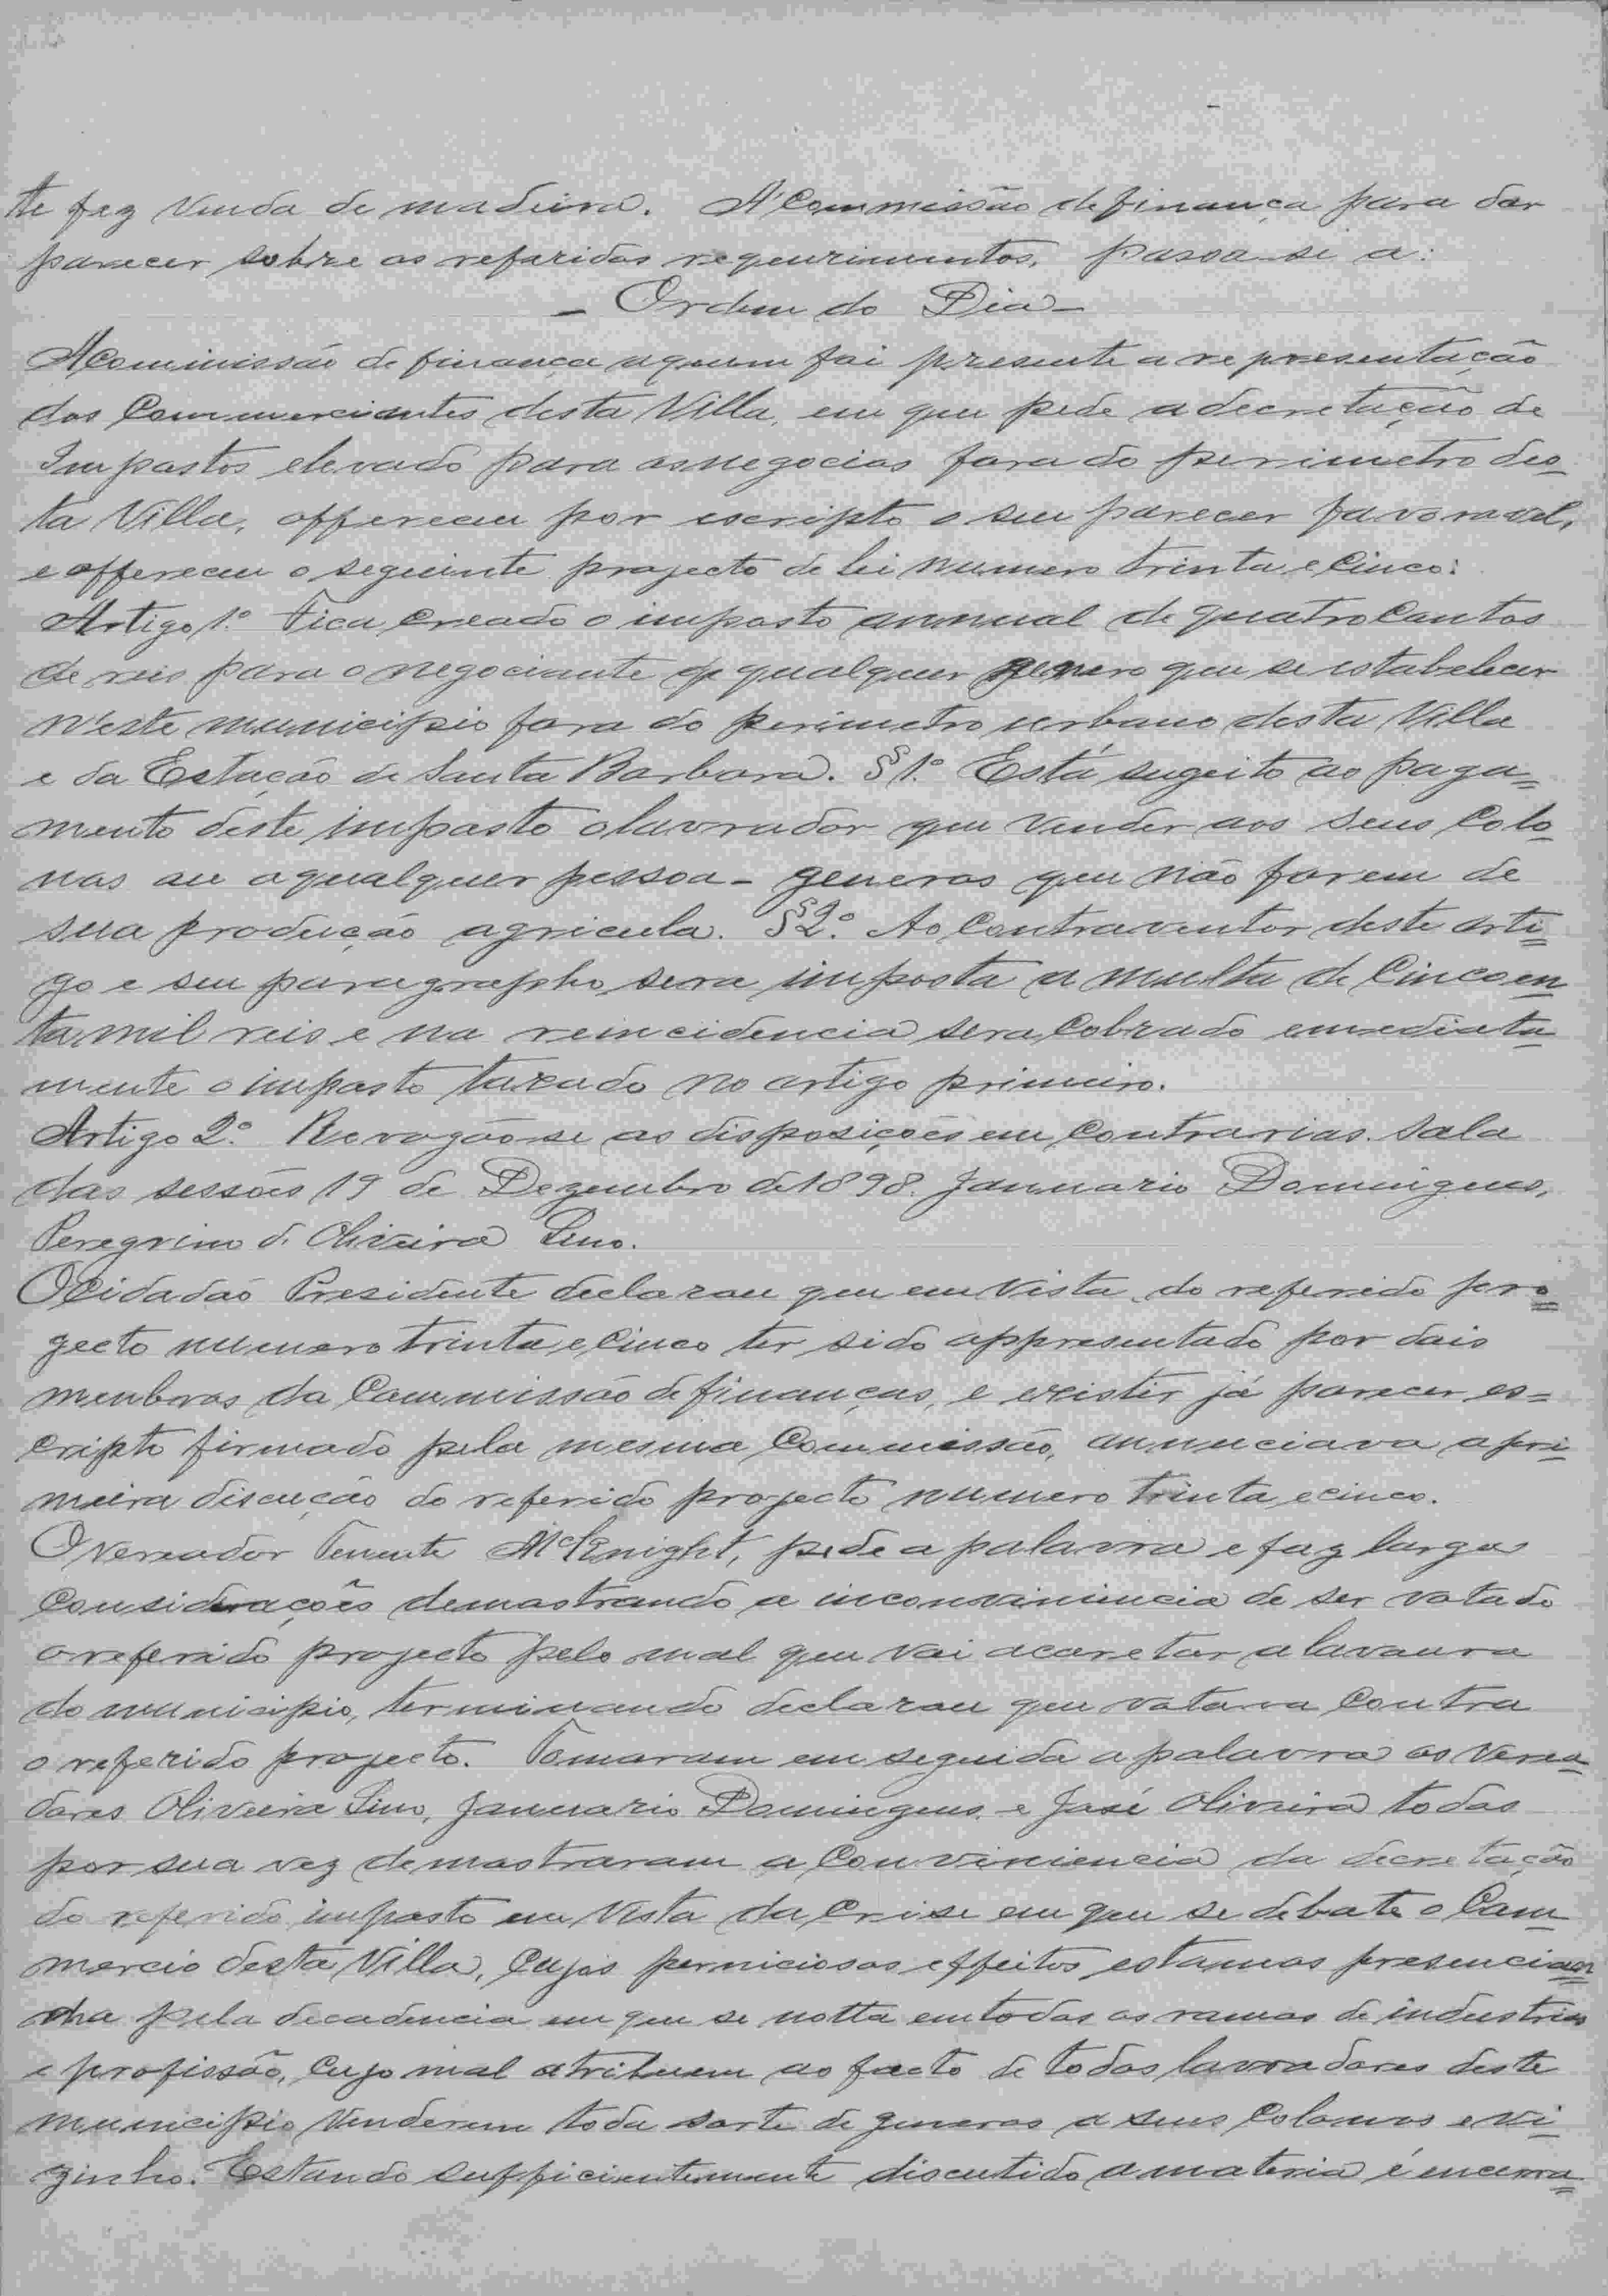 te faz venda de madeira. A' Commissão de finança para dar
parecer sobre os referidos requerimentos, passa-se a:
— Ordem do Dia —
A Commissão de finança a quem foi presente a representação
dos Commerciantes desta Villa, em que pede a decretação de
Impostos elevado para os negocios fora do perimetro des=
ta Villa, offereceu por escripto o seu parecer favoravel,
e offereceu o seguinte projecto de lei numero trinta e Cinco:
Artigo 1.º Fica Creado o imposto annual de quatro Contos
de reis para o negociante de qualquer genero que se estabelecer
n'este municipio fora do perimetro urbano desta Villa
e da Estação de Santa Barbara. § 1.º Está sugeito ao paga=
mento deste imposto o lavrador que vender aos seus Colo=
nos ou a qualquer pessoa - generos que não forem de
sua producção agricula. § 2.º Ao Contraventor deste arti=
go e seu paragrapho, sera imposta a multa de Cincoen=
ta mil reis e na reincidencia sera Cobrado emediata=
mente o imposto taxado no artigo primeiro.
Artigo 2.º Revogão-se as disposições em Contrarias. Sala
das sessões 19 de Dezembro de 1898. Januario Domingues,
Peregrino d. Oliveira Lino.
O Cidadão Presidente declarou que em vista do referido pro=
gecto numero trinta e Cinco ter sido appresentado por dois
membros da Commissão de finanças, e existir já parecer es=
cripto firmado pela mesma Commissão, annunciava a pri=
meira discução do referido projecto numero trinta e cinco.
O Vereador Tenente McKnight, pede a palavra e faz largas
Considerações demostrando a inconviniencia de ser votado
o referido projecto pelo mal que vai acarretar a lavoura
do municipio, terminando declarou que votava Contra
o referido projecto. Tomaram em seguida a palavra os Verea=
dores Oliveira Lino, Januario Domingues, e José Oliveira todos
por sua vez demostraram a Conviniencia da decretação
do referido imposto em vista da Crise em que se debate o Com=
mercio desta Villa, Cujos perniciosos effeitos estamos presencian=
do pela decadencia em que se notta em todos os ramos de industria
e profissão, Cujo mal atribuem ao facto de todos lavradores deste
municipio venderem toda sorte de generos a seus Colonos e vi=
zinho. Estando sufficientemente discutido a materia é encerra=